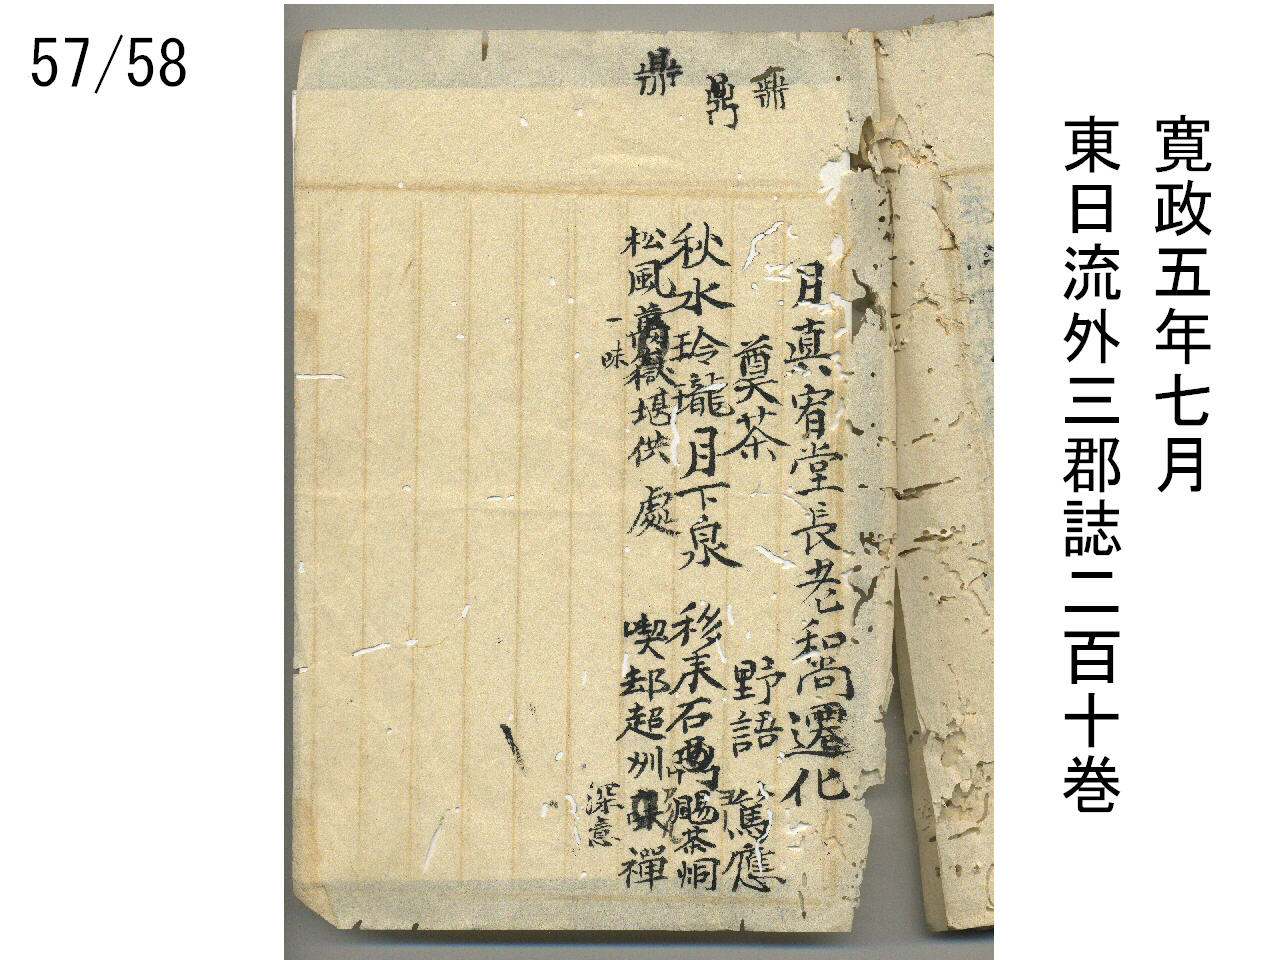 57/58
寛政五年七月
東日流外三郡誌二百十巻
鼎
鼎
鼎
月真宥堂長老和尚遷化
奠茶 野語 篤應
秋水玲瓏月下泉 移来石 賜茶烔
松風 嶽堪供處 喫却趙州 禅
一味
深意